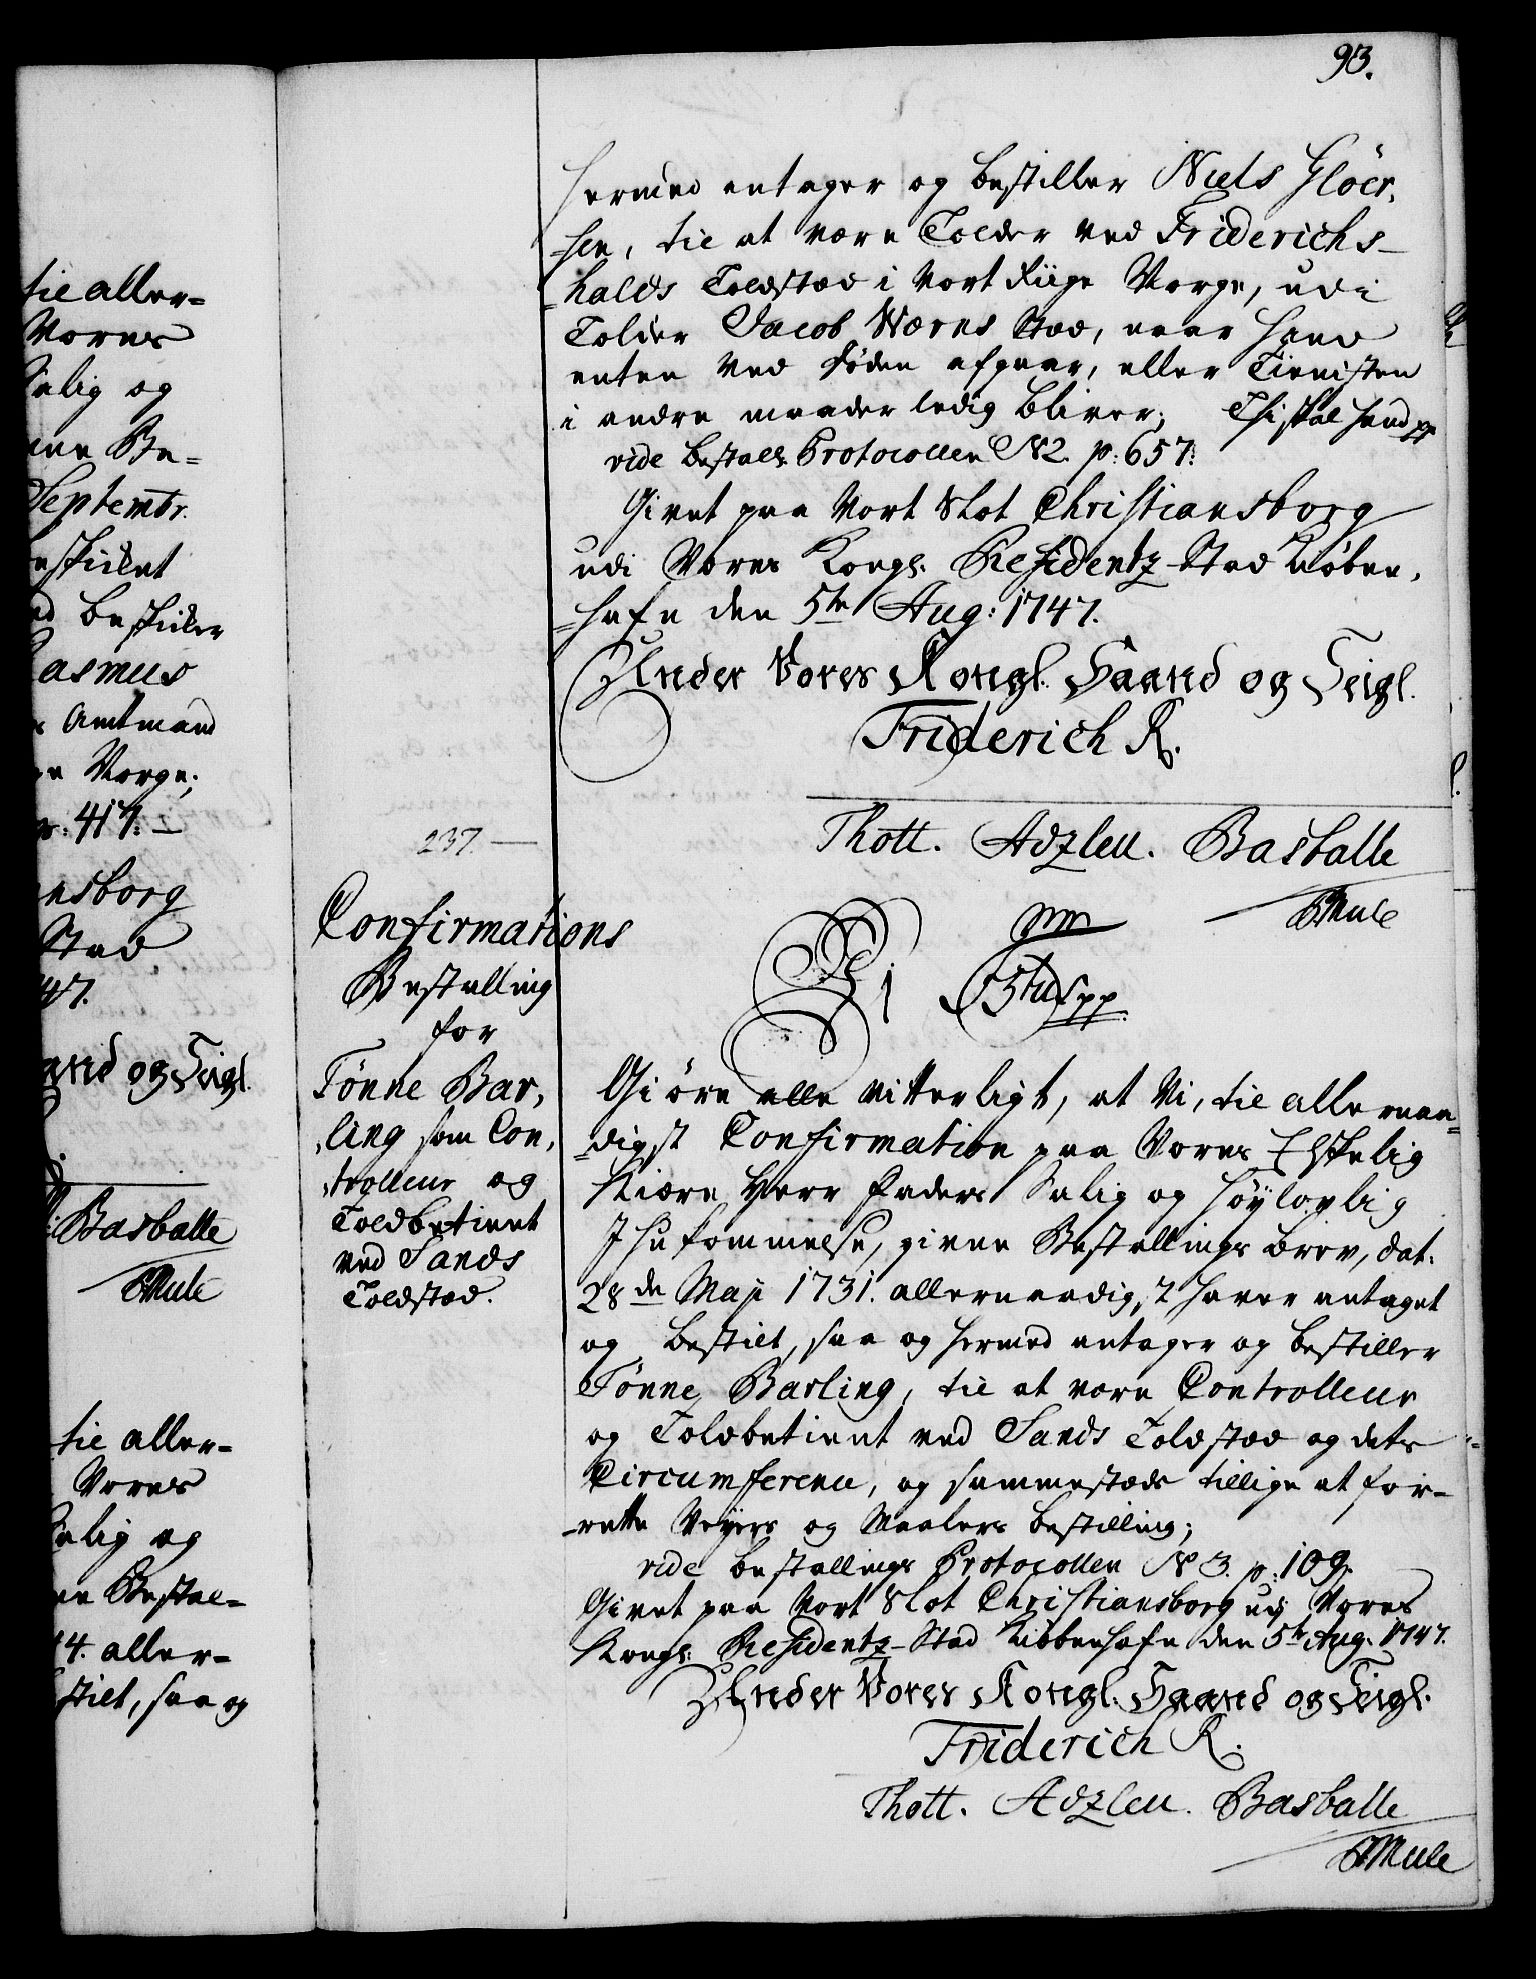 93.
hermed antager og bestiller Niels Glöer,
sen, til at være Tolder ved Friderichs-
halds Toldstæd i Vort Riige Norge, udi
Tolder Jacob Wærns Stæd, naar hand
enten ved Døden afgaar, eller Tienisten
i andre maader ledig bliver; Thi skal hand pp
vide bestall: Protocollen N 2. p: 657:
Givet paa Vort Slot Christiansborg
udi Vores Kongl. Residentz-Stad Kiøben,
hafn den 5te Aug: 1747.
Under Vores Kongl. Haand og Seigl.
Friderich R.
Thott. Adzleu. Basballe
Mule
237.
Confirmations
Bestalling
for
Tønne Bar,
,ling som Con,
,trolleur og
Toldbetient
ved Sands
Toldstæd.
Vi 5tus pp.
Giøre alle vitterligt, at Vi, til allernaa=
=digst Confirmation paa Vores Elskelig
Kiære Herr Faders Salig og høylovlig
Ihukommelse, givne Bestallings brev, dat.
28de Maji 1731. allernaadigst haver antaget
og bestilt, saa og hermed antager og bestiller
Tønne Barling, til at være Controlleur
og Toldbetient ved Sands Toldstæd og dets
Circumference, og sammestæds tillige at for-
-rette Veyers og Maalers bestilling;
vide bestallings Protocollen N 3. p: 109.
Givet paa Vort Slot Christiansborg udi Vores
Kongl: Residentz-Stad Kiøbenhafn den 5te Aug. 1747.
Under Vores Kongl. Haand og Seigl.
Friderich R.
Thott. Adzleu. Basballe
Mule
til aller=
Vores
Salig og
Be=
Septembr.
bestiller
Rasmus
Amtmand
Norge;
417:
Stad
47.
og Seigl.
Basballe
Mule
til aller=
Vores
Salig og
Bestal=
44. aller=
stilt, saa og